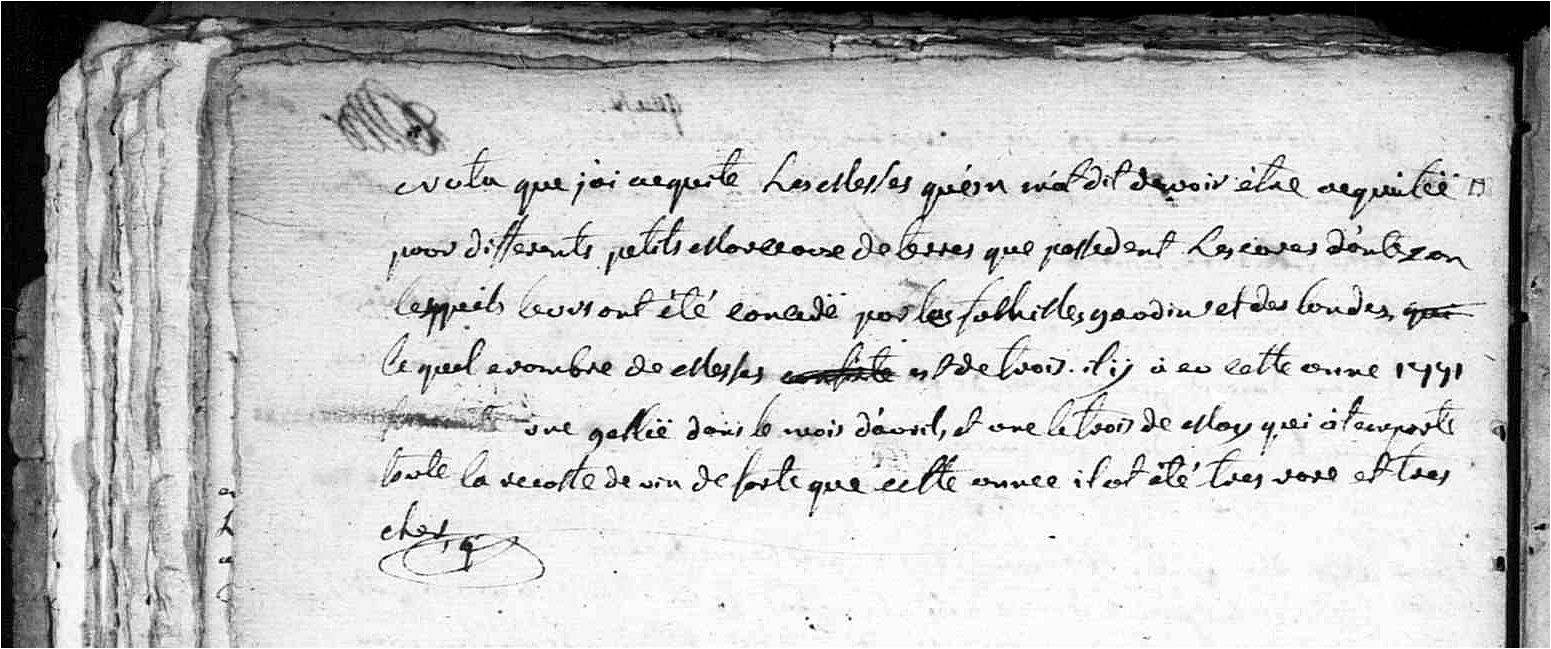 Nota que j'ai acquité Les Messes qu'on m'at dit devoir être acquitéë
pour differents petits Morceaux de terres que possedent Les cures d'Antezan
lesquels leurs ont été concedé par les famhilles gaudin et des landes, qui
le quel nombre de Messes consiste est de trois. il y à eu cette anne 1771
une gelléë dans le mois d'avril, et une le trois de May qui àt emporté
toute la recolte de vin de sorte que cette annee il at été tres rare et tres
cher,